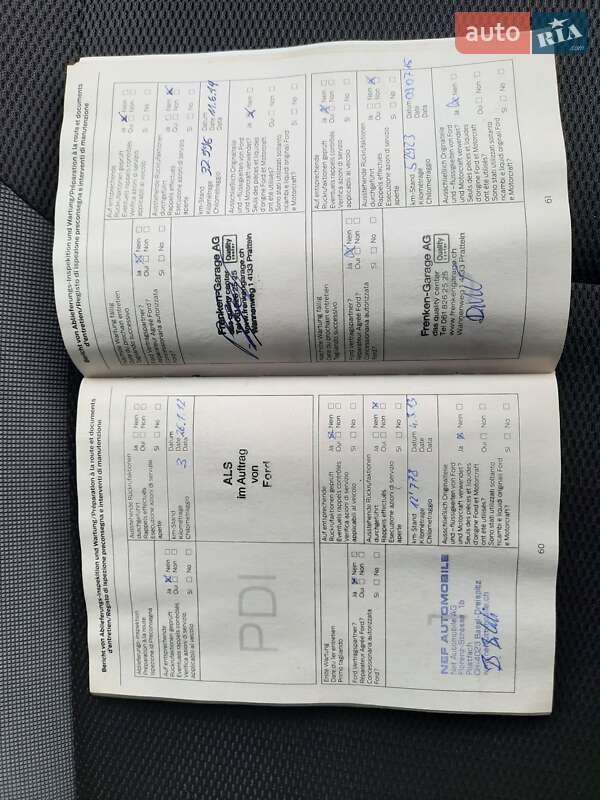 auto RIA.com
Bericht von Ablieferungs-Inspektion und Wartung/Préparation à la route et documents
d'entretien/Registo di ispezione preconsegna e interventi di manutenzione
Ablieferungs-Inspektion
Préparation à la route
Ispezione di Preconsegna
Auf entsprechende
Rückrufaktionen geprüft
Eventuels rappels contrôlés
Verifica azioni di servizio
applicabili al veicolo
Ja Nein
Oui Non
Si No
Ausstehende Rückrufaktionen
durchgeführt
Rappels effectués
Esecuzione azioni di servizio
aperte
Ja Nein
Oui Non
Si No
km-Stand
Kilométrage
Chilometraggio
3
Datum
Date
Data
PDI
ALS
im Auftrag
von
Ford
Erste Wartung
Date du 1er entretien
Primo tagliando
Ford Vertragspartner?
Réparateur Agréé Ford?
Concessionaria autorizzata
Ford?
Ja Nein
Oui Non
Si No
Auf entsprechende
Rückrufaktionen geprüft
Eventuels rappels contrôlés
Verifica azioni di servizio
applicabili al veicolo
Ja Nein
Oui Non
Si No
Ausstehende Rückrufaktionen
durchgeführt
Rappels effectués
Esecuzione azioni di servizio
aperte
Ja Nein
Oui Non
Si No
km-Stand
Kilométrage
Chilometraggio
12'778
Datum
Date
Data
NEF AUTOMOBILE
Nef Automobile AG
Florenz-Strasse 1b
Postfach
CH-4023 Basel-Dreispitz
Ausschliesslich Originalteile
und -flüssigkeiten von Ford
und Motorcraft verwendet?
Seuls des pièces et liquides
d'origine Ford et Motorcraft
ont été utilisés?
Sono stati utilizzati soltanto
ricambi e liquidi originali Ford
e Motorcraft?
Ja Nein
Oui Non
Si No
60
Bericht von Ablieferungs-Inspektion und Wartung/Préparation à la route et documents
d'entretien/Registo di ispezione preconsegna e interventi di manutenzione
Nächste Wartung fällig
Date du prochain entretien
Tagliando successivo
Ford Vertragspartner?
Réparateur Agréé Ford?
Concessionaria autorizzata
Ford?
Ja Nein
Oui Non
Si No
Auf entsprechende
Rückrufaktionen geprüft
Eventuels rappels contrôlés
Verifica azioni di servizio
applicabili al veicolo
Ja Nein
Oui Non
Si No
Ausstehende Rückrufaktionen
durchgeführt
Rappels effectués
Esecuzione azioni di servizio
aperte
Ja Nein
Oui Non
Si No
km-Stand
Kilométrage
Chilometraggio
Datum
Date
Data
11.6.14
Frenken-Garage AG
das quality center
Quality
Tel 061 826 25 25
www.frenkengarage.ch
Wannenweg 1 4133 Pratteln
Ausschliesslich Originalteile
und -flüssigkeiten von Ford
und Motorcraft verwendet?
Seuls des pièces et liquides
d'origine Ford et Motorcraft
ont été utilisés?
Sono stati utilizzati soltanto
ricambi e liquidi originali Ford
e Motorcraft?
Ja Nein
Oui Non
Si No
Nächste Wartung fällig
Date du prochain entretien
Tagliando successivo
Ford Vertragspartner?
Réparateur Agréé Ford?
Concessionaria autorizzata
Ford?
Ja Nein
Oui Non
Si No
Auf entsprechende
Rückrufaktionen geprüft
Eventuels rappels contrôlés
Verifica azioni di servizio
applicabili al veicolo
Ja Nein
Oui Non
Si No
Ausstehende Rückrufaktionen
durchgeführt
Rappels effectués
Esecuzione azioni di servizio
aperte
Ja Nein
Oui Non
Si No
km-Stand
Kilométrage
Chilometraggio
52023
Datum
Date
Data
Frenken-Garage AG
das quality center
Quality
Tel 061 826 25 25
www.frenkengarage.ch
Wannenweg 1 4133 Pratteln
Ausschliesslich Originalteile
und -flüssigkeiten von Ford
und Motorcraft verwendet?
Seuls des pièces et liquides
d'origine Ford et Motorcraft
ont été utilisés?
Sono stati utilizzati soltanto
ricambi e liquidi originali Ford
e Motorcraft?
Ja Nein
Oui Non
Si No
61